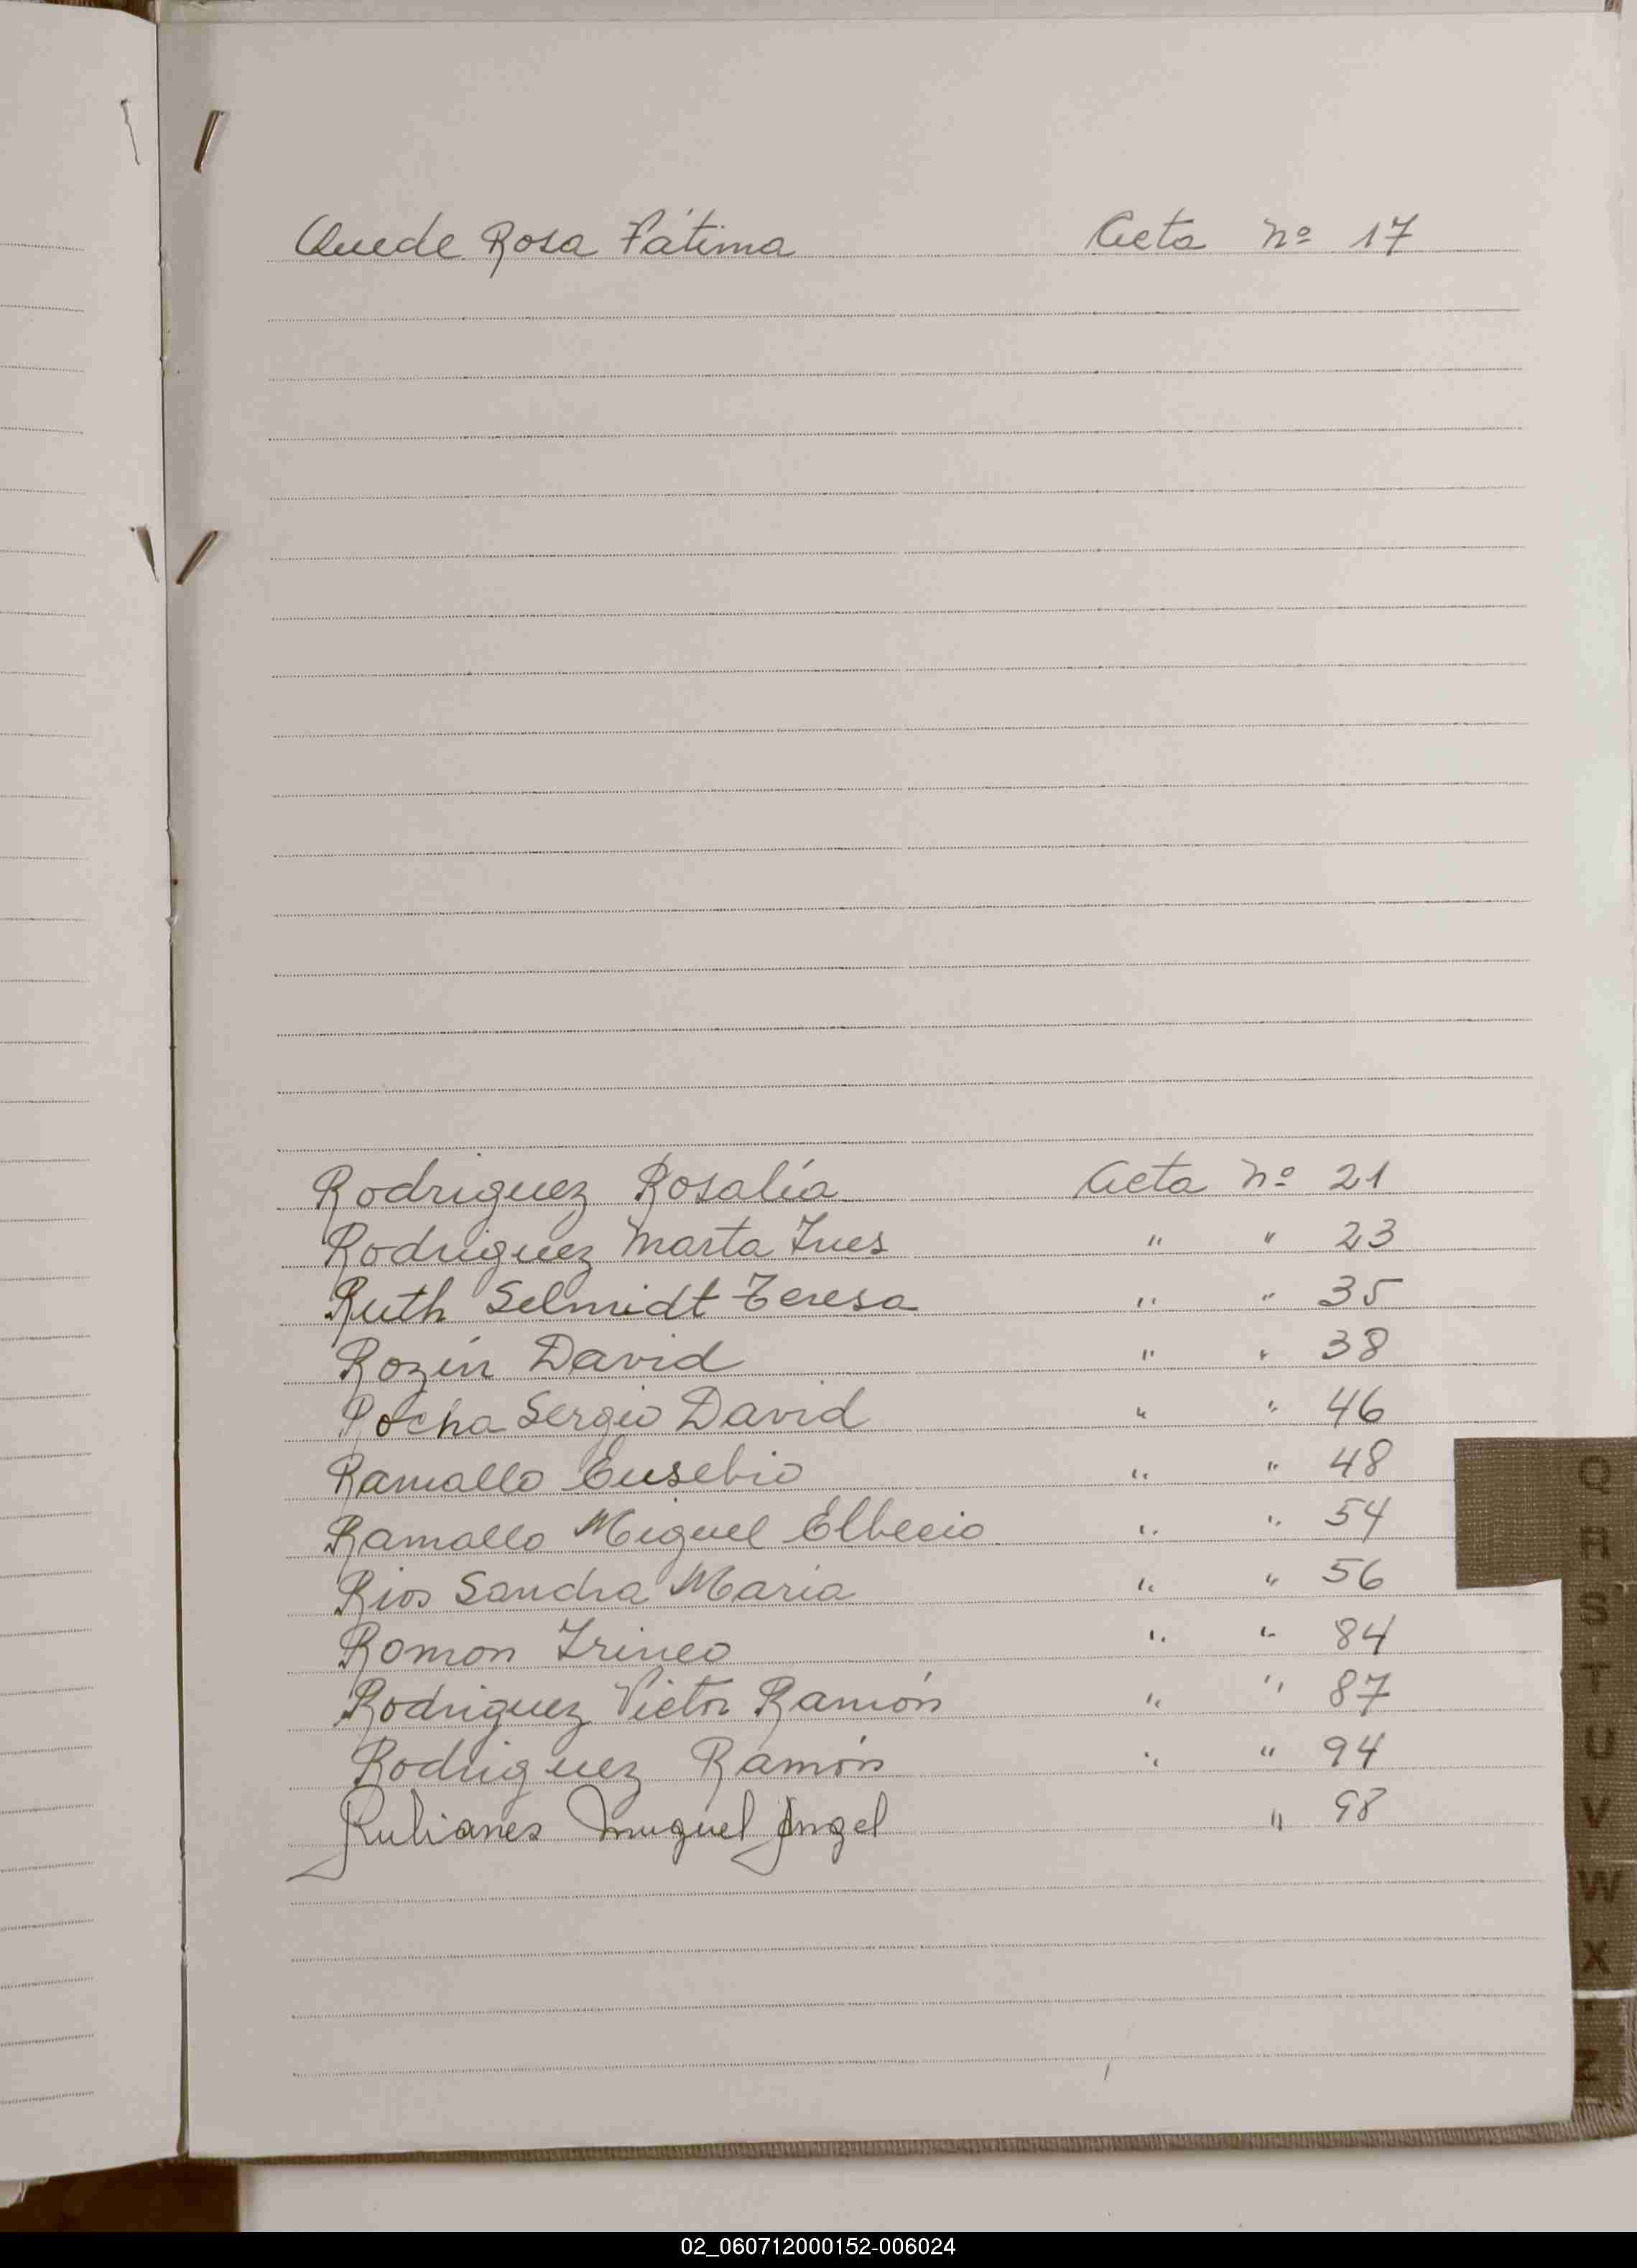 Quede Rosa Fátima Acta nº 17
Rodriguez Rosalía Acta nº 21
Rodriguez Marta Ines " " 23
Ruth Selmidt Teresa " " 35
Rozín David " " 38
Rocha Sergio David " " 46
Ramallo Eusebio " " 48
Ramallo Miguel Elbecio " " 54
Rios Sandra Maria " " 56
Romon Irineo " " 84
Rodriguez Victor Ramón " " 87
Rodriguez Ramón " " 94
Miguel Angel " 98
Q
R
S
T
U
V
W
X
Z
02_060712000152-006024